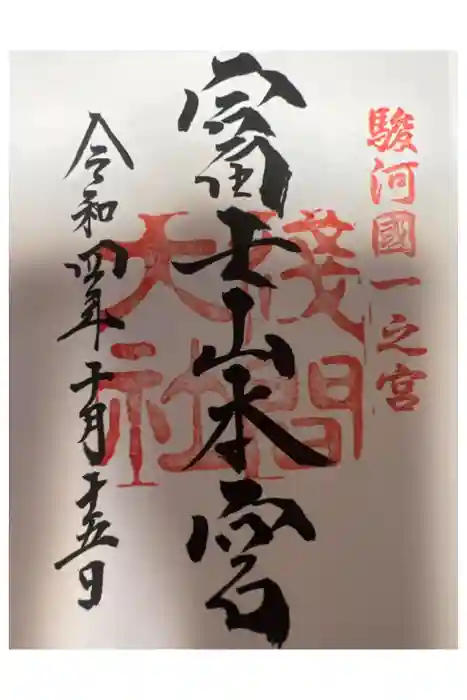 駿河國一之宮
富士山本宮
淺間
大社
令和四年十月十五日